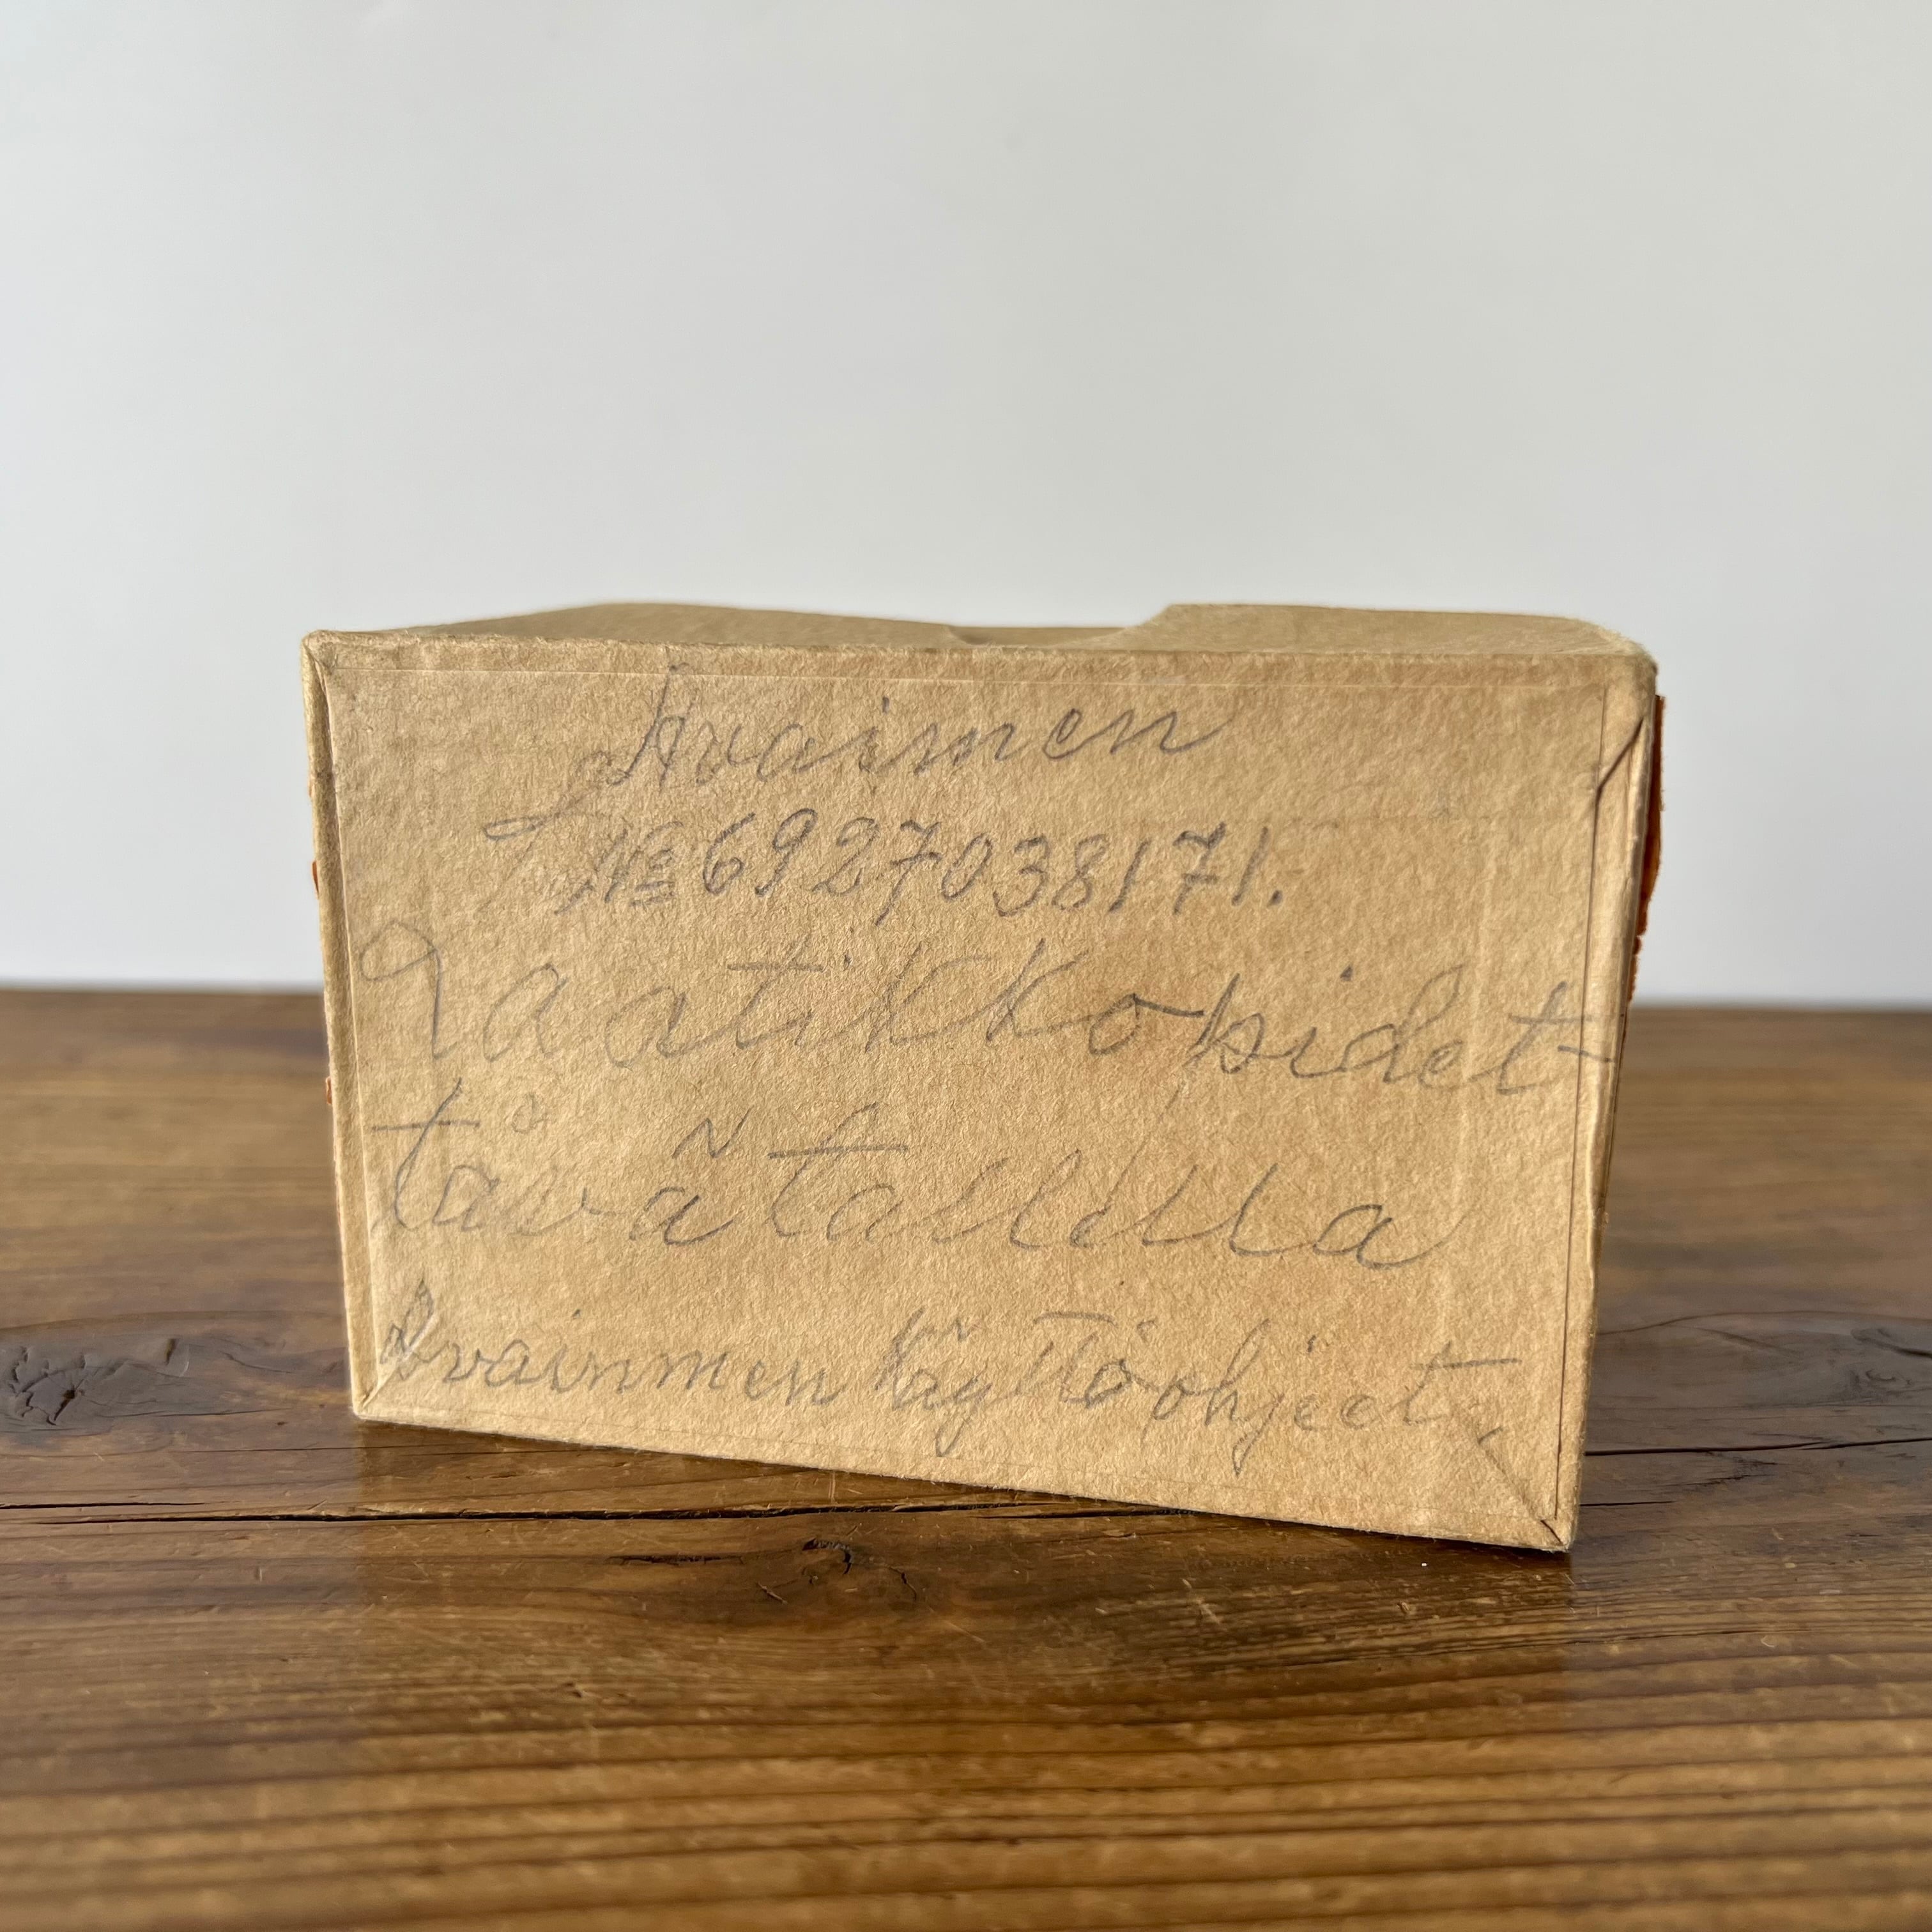 Avaimen
№ 6927038171.
Laatikko pidet
tävä tallella
Avainmen käyttöohjeet.